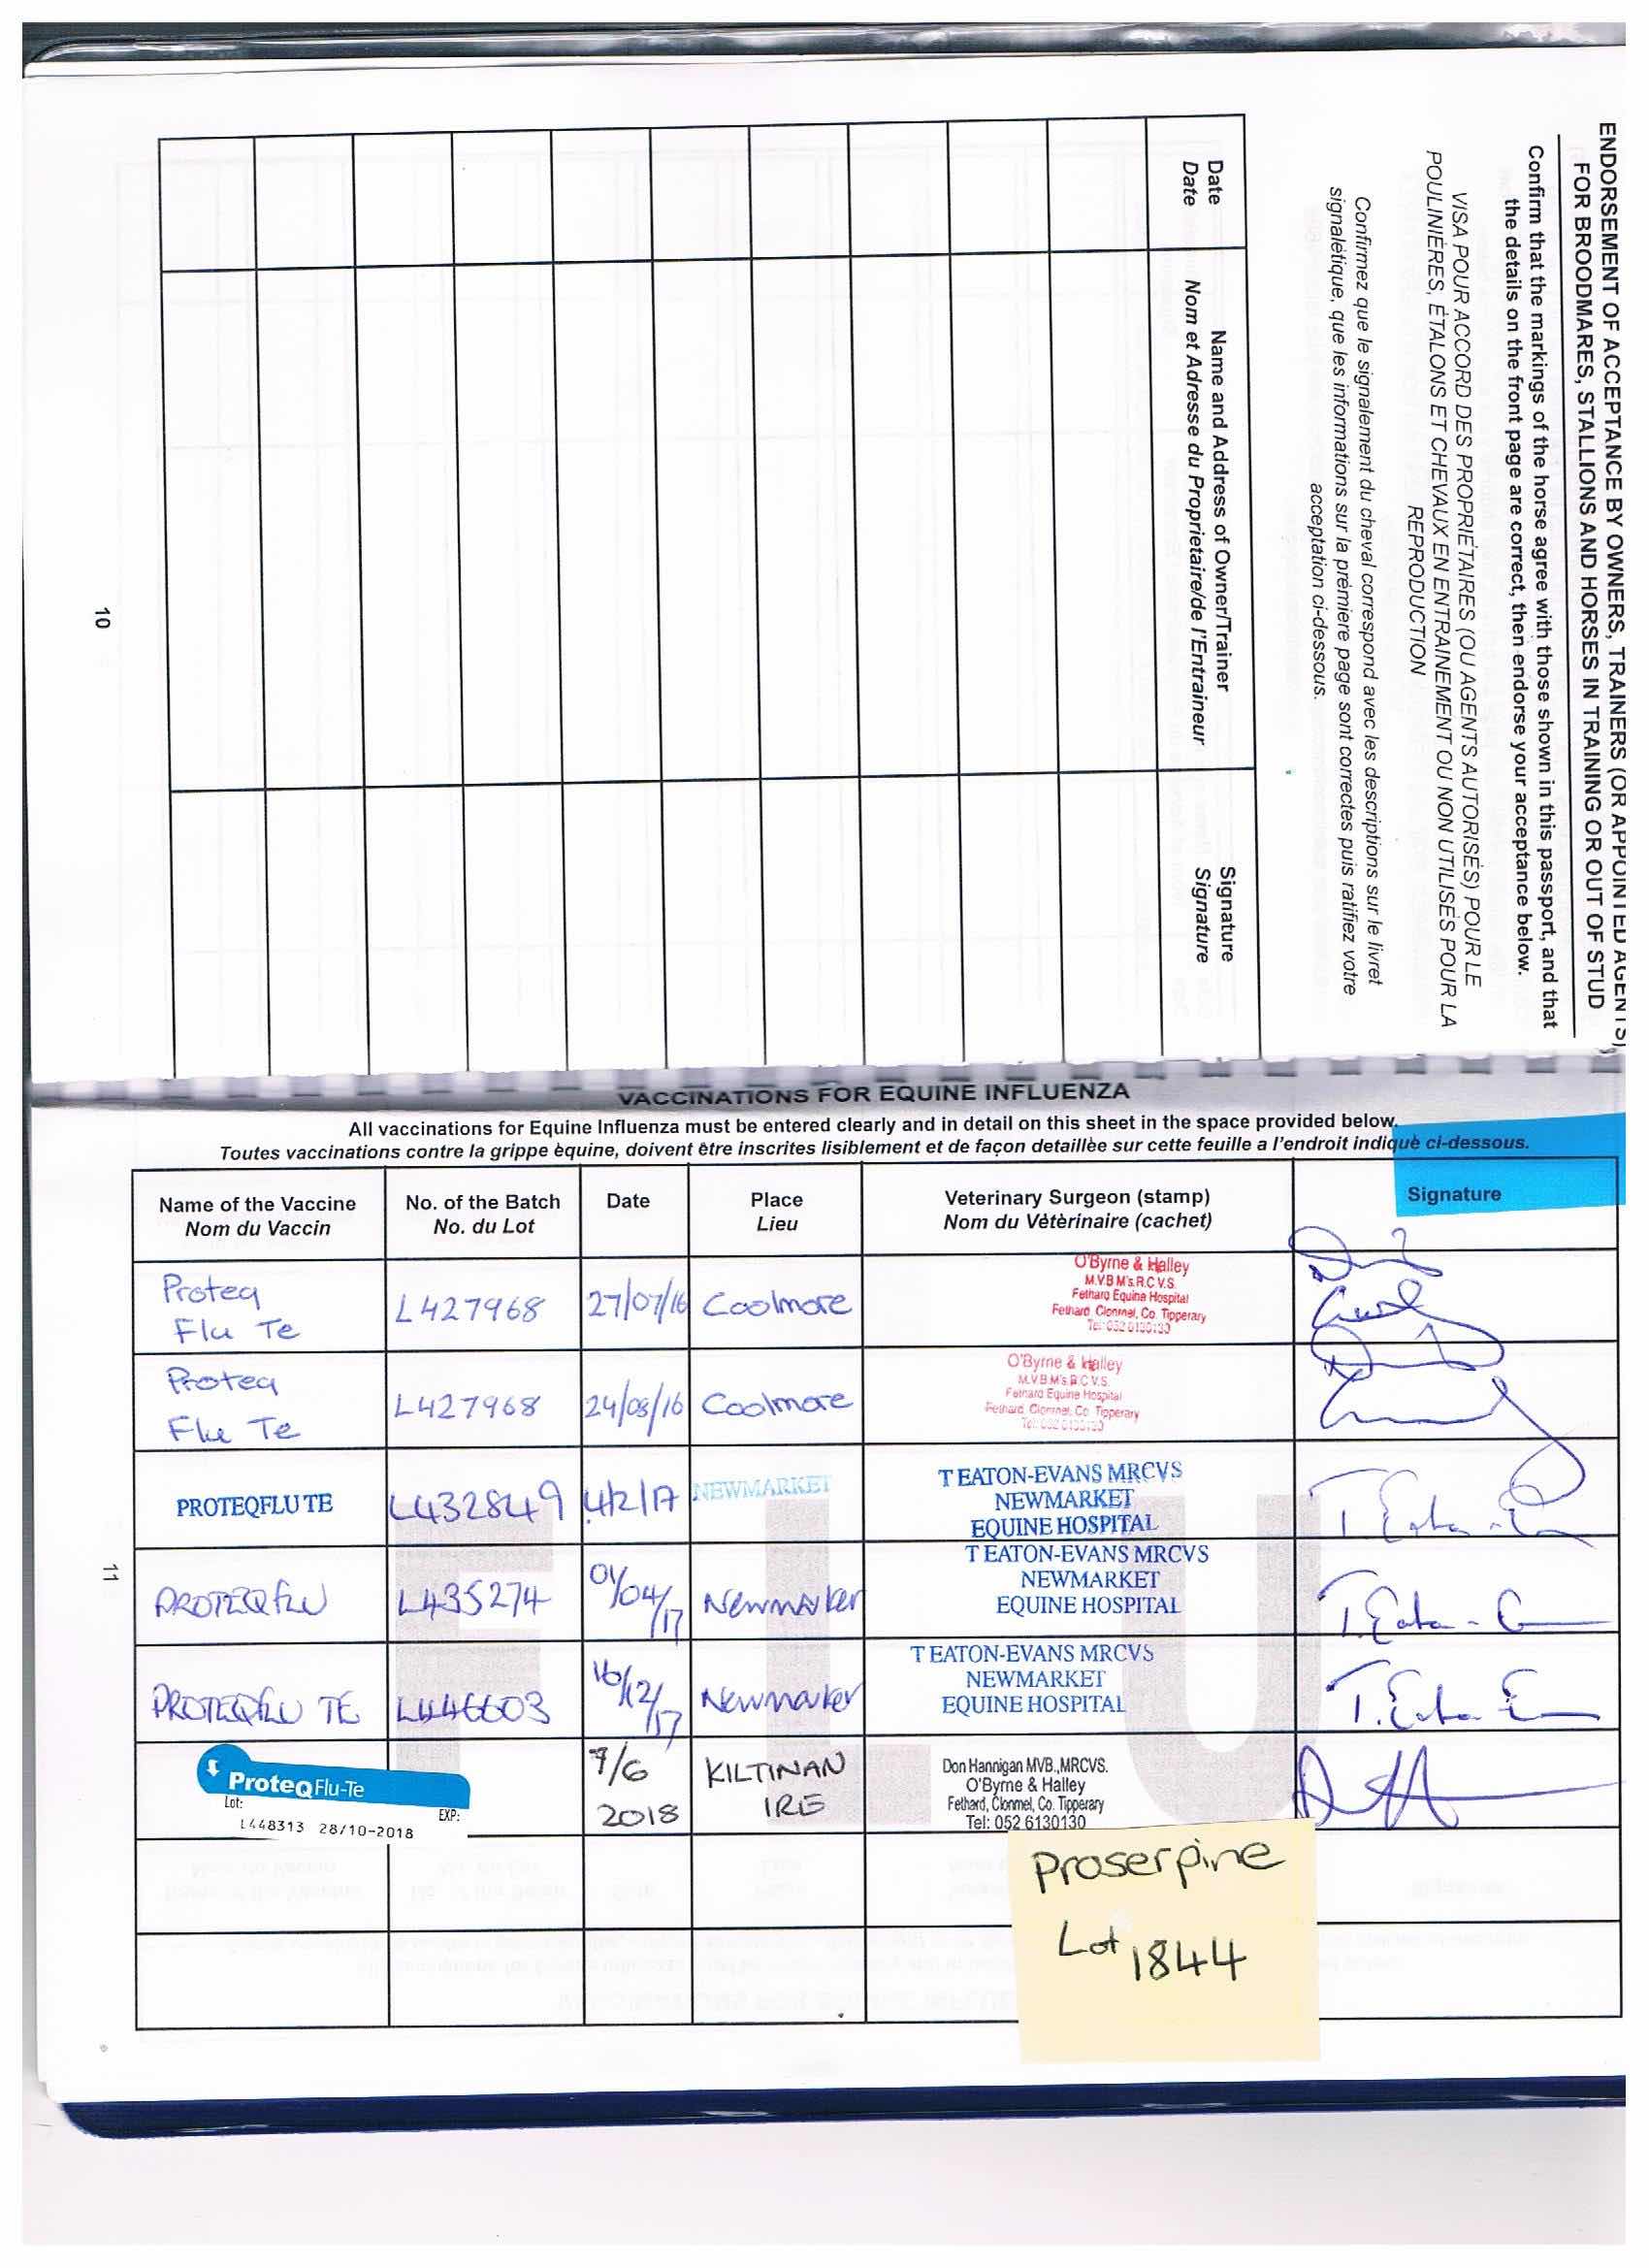 ENDORSEMENT OF ACCEPTANCE BY OWNERS, TRAINERS (OR APPOINTED AGENTS)
FOR BROODMARES, STALLIONS AND HORSES IN TRAINING OR OUT OF STUD
Confirm that the markings of the horse agree with those shown in this passport, and that
the details on the front page are correct, then endorse your acceptance below.
VISA POUR ACCORD DES PROPRIÉTAIRES (OU AGENTS AUTORISÉS) POUR LE
POULINIÈRES, ÉTALONS ET CHEVAUX EN ENTRAINEMENT OU NON UTILISÉS POUR LA
REPRODUCTION
Confirmez que le signalement du cheval correspond avec les descriptions sur le livret
signalétique, que les informations sur la première page sont correctes puis ratifiez votre
acceptation ci-dessous.
Date Name and Address of Owner/Trainer Signature
Date Nom et Adresse du Proprietaire/de l'Entraineur Signature
10
VACCINATIONS FOR EQUINE INFLUENZA
All vaccinations for Equine Influenza must be entered clearly and in detail on this sheet in the space provided below.
Toutes vaccinations contre la grippe èquine, doivent être inscrites lisiblement et de façon detaillèe sur cette feuille a l'endroit indiquè ci-dessous.
Name of the Vaccine No. of the Batch Date Place Veterinary Surgeon (stamp) Signature
Nom du Vaccin No. du Lot Lieu Nom du Vètèrinaire (cachet)
Proteq
Flu Te
L427968
27/07/16
Coolmore
O'Byrne & Halley
M.V.B M's.R.C.V.S.
Fethard Equine Hospital
Fethard, Clonmel, Co. Tipperary
Tel: 052 6130130
Proteq
Flu Te
L427968
24/08/16
Coolmore
O'Byrne & Halley
M.V.B M's R.C.V.S.
Fethard Equine Hospital
Fethard, Clonmel, Co. Tipperary
Tel: 052 6130130
PROTEQFLU TE
L432849
4/2/17
NEWMARKET
T EATON-EVANS MRCVS
NEWMARKET
EQUINE HOSPITAL
PROTEQFLU
L435274
01/04/17
Newmarket
T EATON-EVANS MRCVS
NEWMARKET
EQUINE HOSPITAL
PROTEQFLU TE
L446603
16/12/17
Newmarket
T EATON-EVANS MRCVS
NEWMARKET
EQUINE HOSPITAL
ProteqFlu-Te
Lot: EXP:
L448313 28/10-2018
7/6
2018
KILTINAN
IRE
Don Hannigan MVB.,MRCVS.
O'Byrne & Halley
Fethard, Clonmel, Co. Tipperary
Tel: 052 6130130
FLU
11
Proserpine
Lot 1844